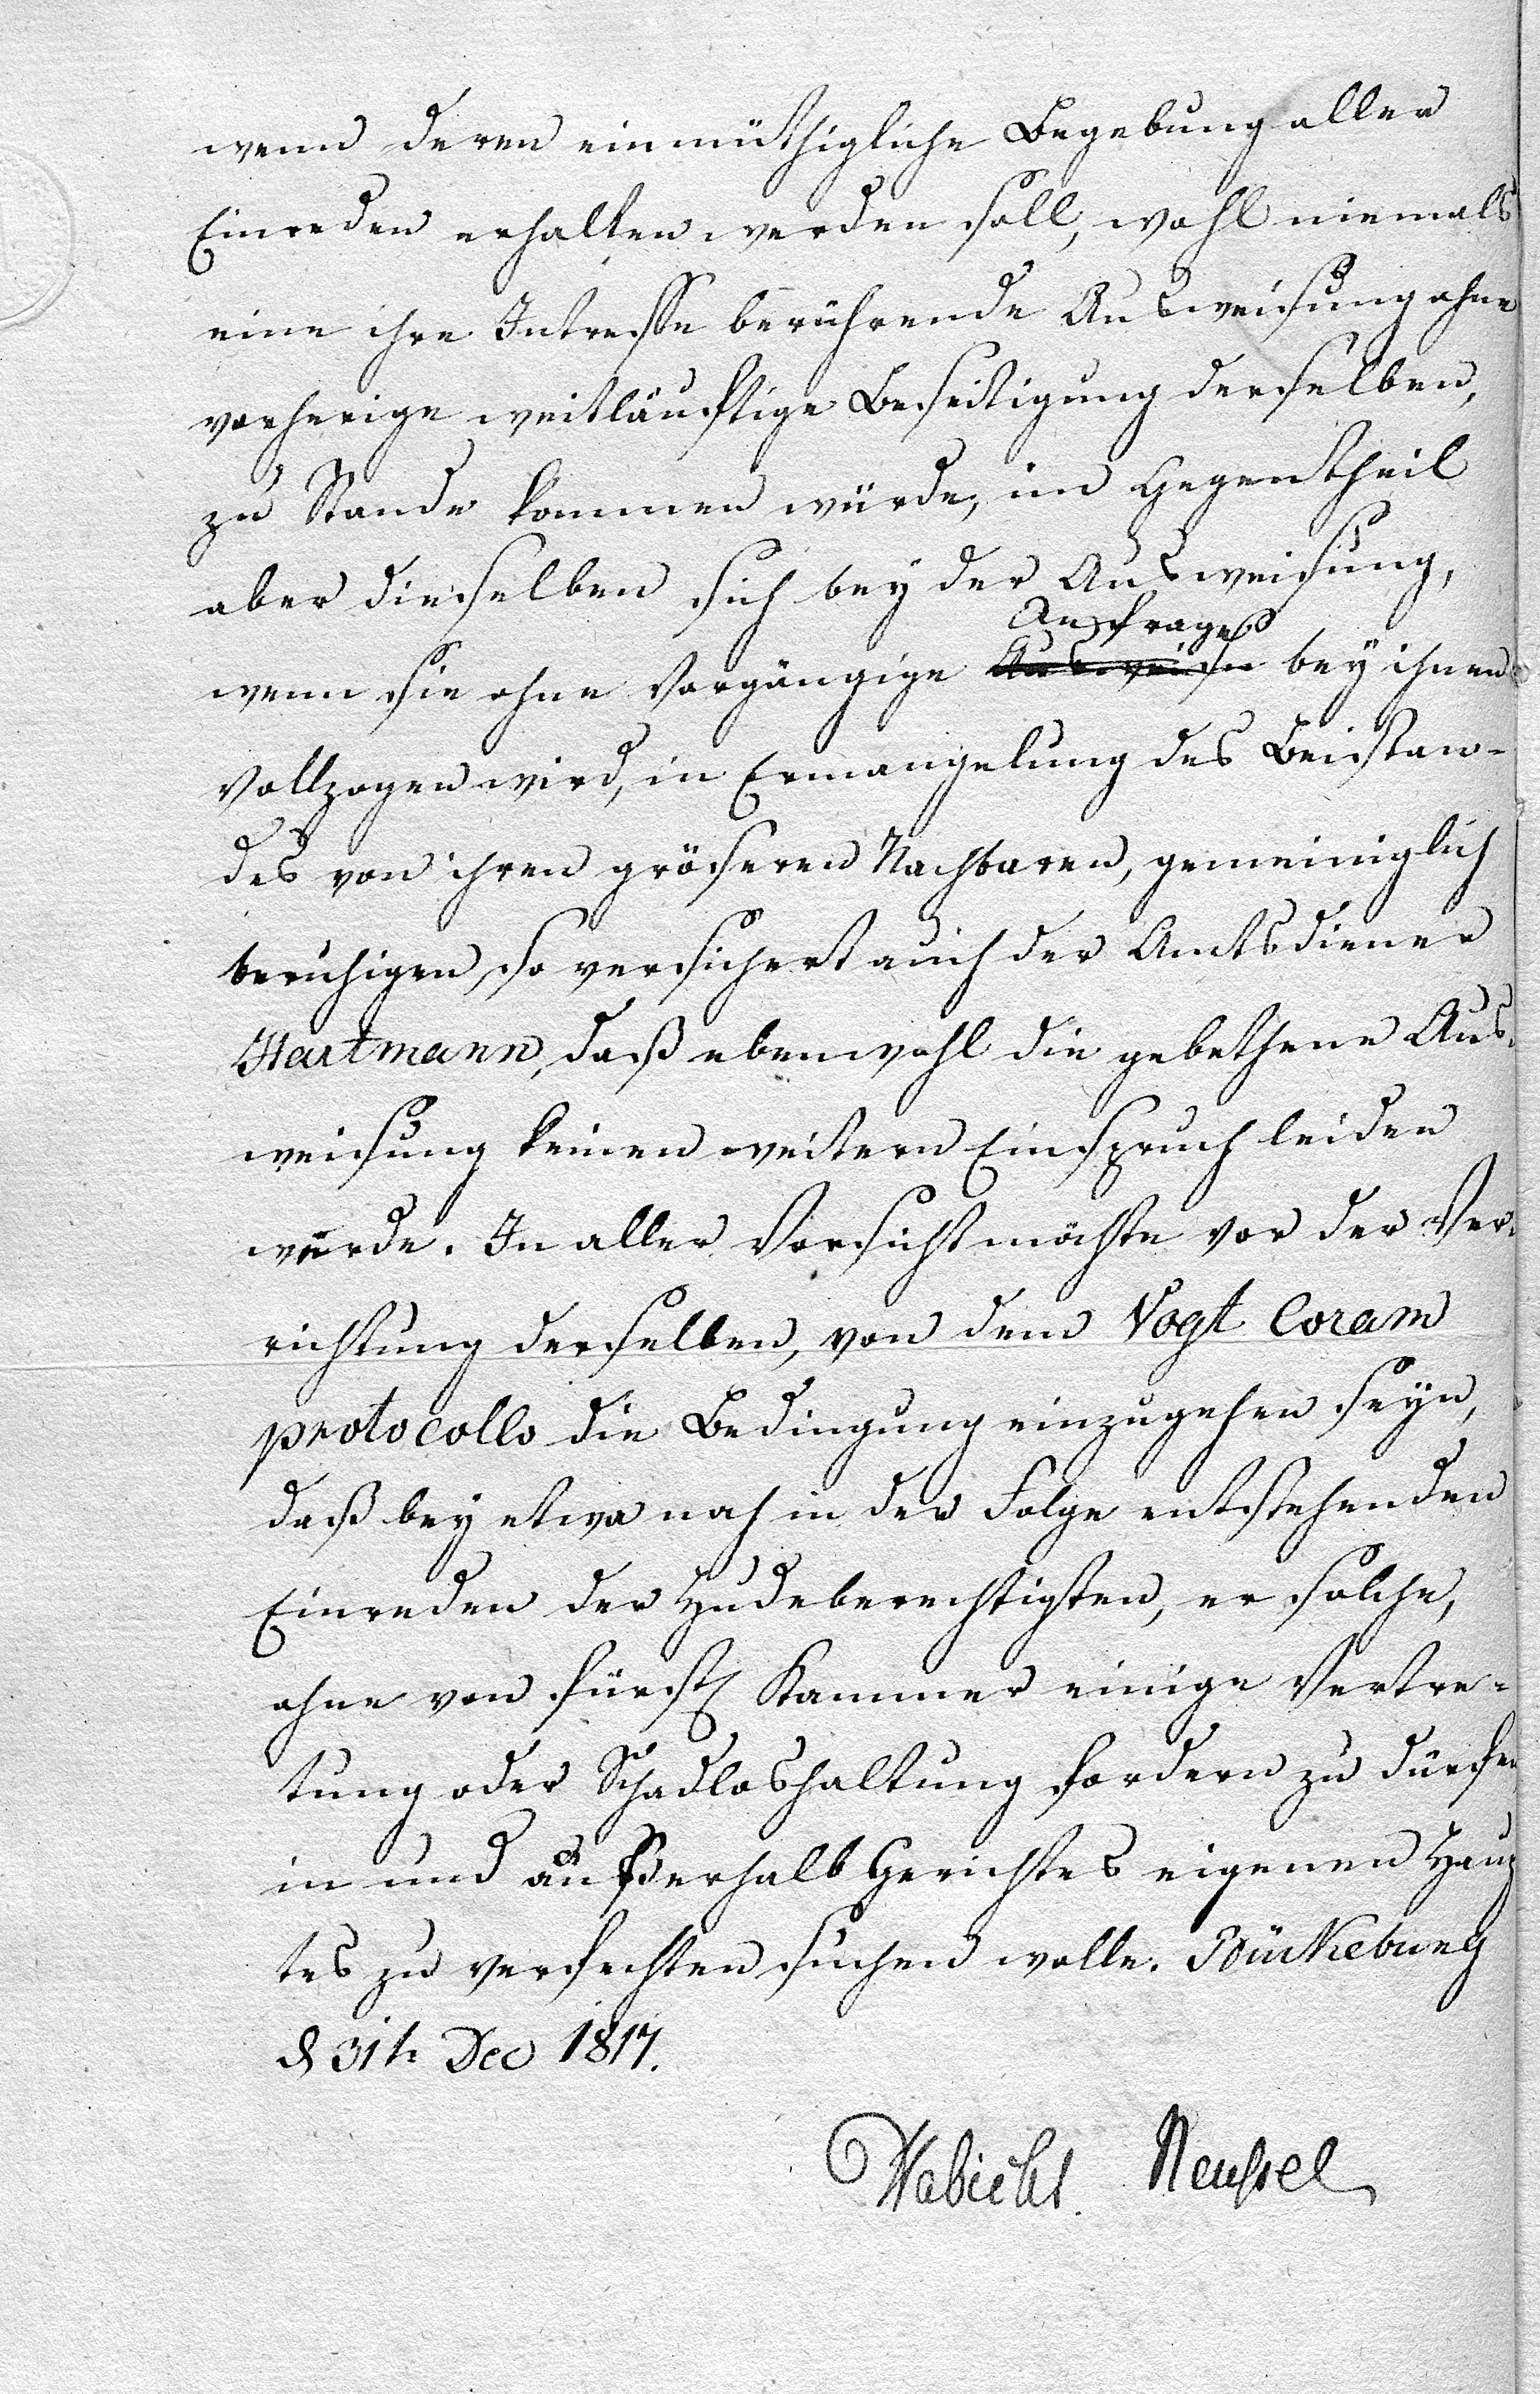 wenn deren einmüthigliche Begebung aller
Einreden erhalten werden soll, wohl niemals
eine ihre Intresse berührende Ausweisung ohne
vorherige weitläuftige Beseitigung derselben,
zu Stande kommen würde, im Gegentheil
aber dieselben sich bey der Ausweisung,
Anfrage
wenn sie ohne vorgängige Ausweisu bey ihnen
vollzogen wird, in Ermangelung des Beistan-
des von ihren gröseren Nachbaren, gemeiniglich
beruhigen, so versichert auch der Amtsdiener
Hartmann, daß ebenwohl die gebethene Aus-
weisung keinen weitern Einspruch leiden
werde. In aller Vorsicht möchte vor der Ver-
richtung derselben, von dem Vogt Coram
protocollo die Bedingung einzugehen seyn,
daß bey etwa noch in der Folge entstehenden
Einreden der Hudeberechtigten, er solche,
ohne von fürstl Kammer einige Vertre-
tung oder Schadloshaltung fordern zu dürfen
in und außerhalb Gerichtes eigenen Haup
tes zu verfechten suchen wolle. Bückeburg
d 31t. Dec 1817.
Habicht. Neussel